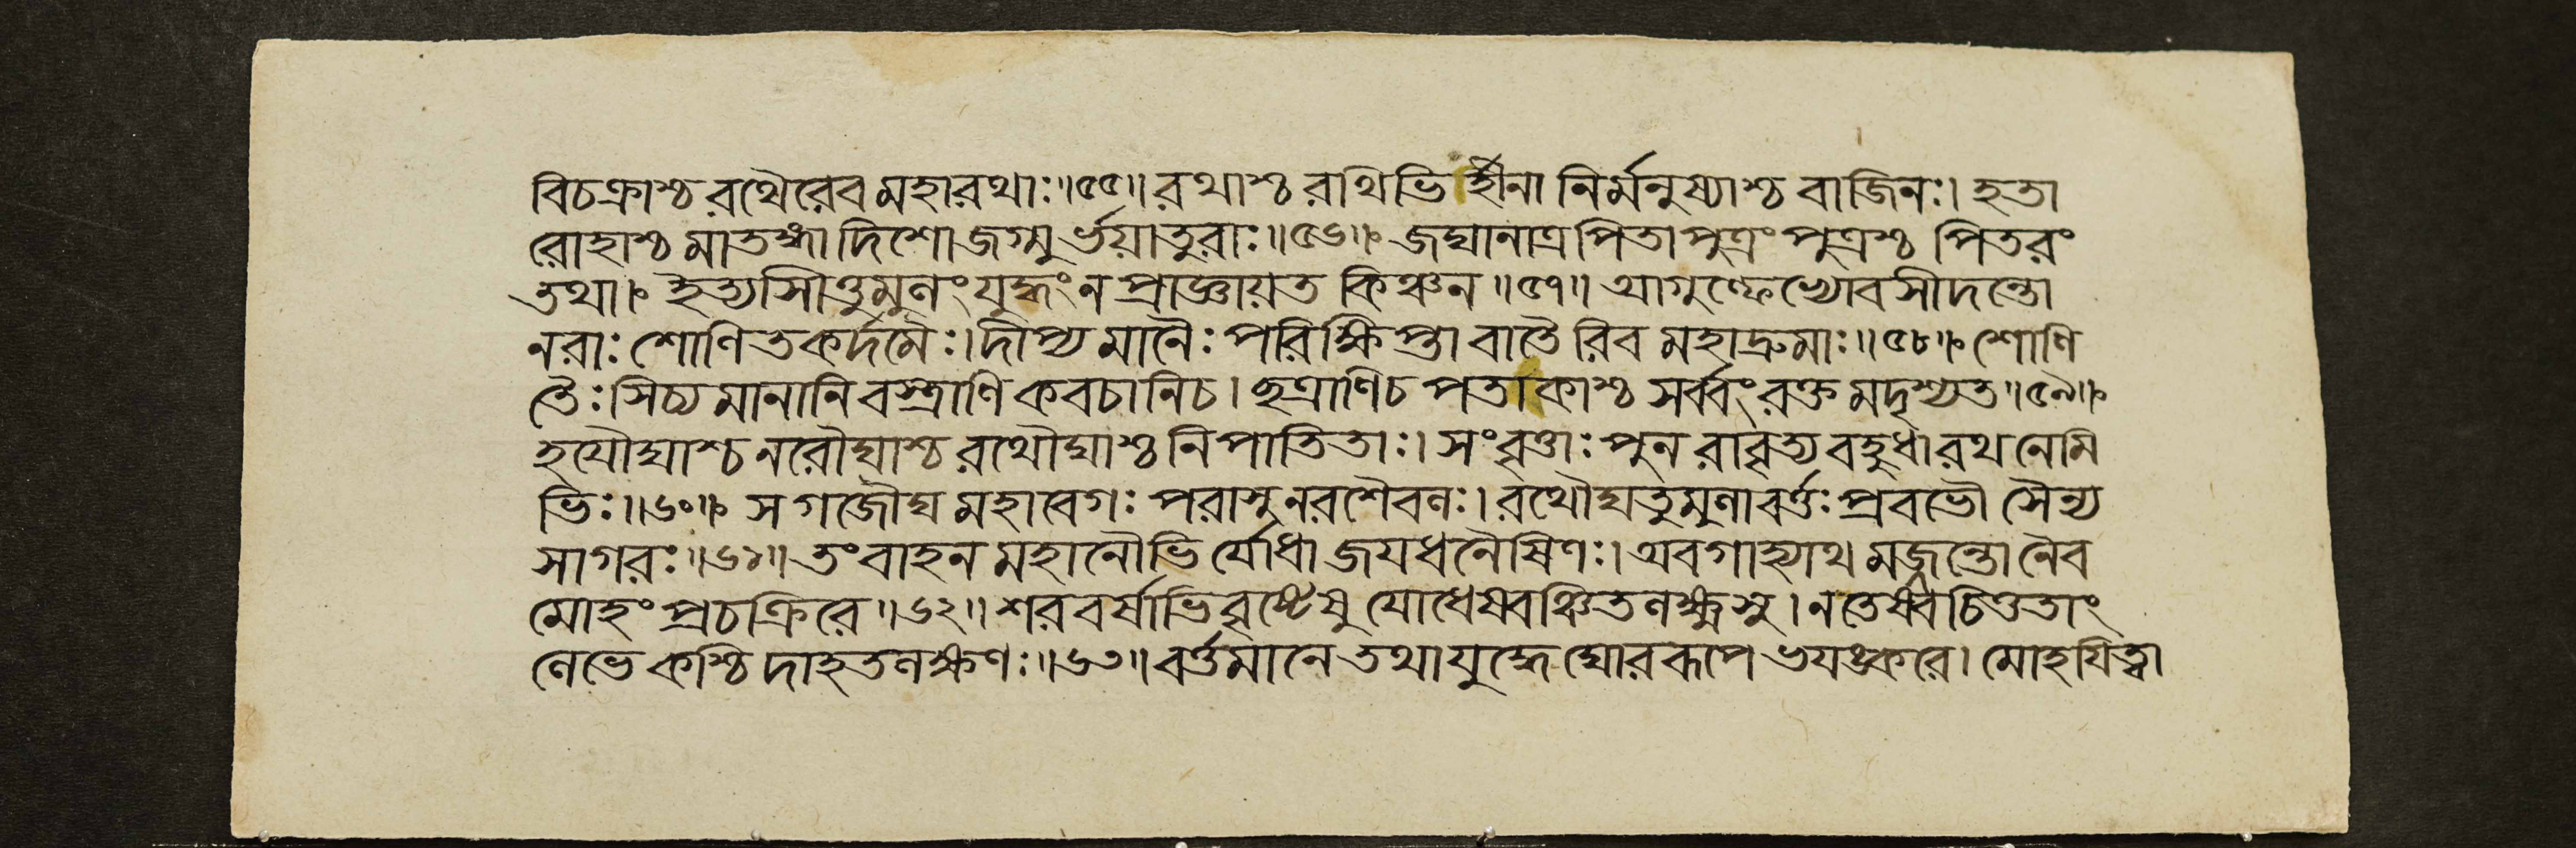 বিচক্রাশ্চ রথৈরেব মহারথাঃ॥৫৫॥ রথাশ্চ রথিভির্হীনা নির্মনুষ্যাশ্চ বাজিনঃ। হতা
রোহাশ্চ মাতঙ্গা দিশো জগ্মুর্ভয়াতুরাঃ॥৫৬॥ জঘানাত্র পিতা পুত্রং পুত্রশ্চ পিতরং
তথা। ইত্যাসীত্তুমুলং যুদ্ধং ন প্রাজ্ঞায়ত কিঞ্চন॥৫৭॥ আগুল্ফেভ্যোবসীদন্তো
নরাঃ শোণিতকর্দমৈঃ। দীপ্যমানৈঃ পরিক্ষিপ্তা বাতৈরিব মহাদ্রুমাঃ॥৫৮॥ শোণি
তৈঃ সিচ্যমানানি বস্ত্রাণি কবচানি চ। ছত্রাণি চ পতাকাশ্চ সর্ব্বং রক্তমদৃশ্যত॥৫৯॥
হযৌঘাশ্চ নরৌঘাশ্চ রথৌঘাশ্চ নিপাতিতাঃ। সংবৃত্তাঃ পুনরাবৃত্য বহুধা রথনেমি
ভিঃ॥৬০॥ স গজৌঘমহাবেগঃ পরাসুনরশৈবলঃ। রথৌঘতুমুলাবর্ত্তঃ প্রবভৌ সৈন্য
সাগরঃ॥৬১॥ তং বাহনমহানৌভির্যোধা জযধনৈষিণঃ। অবগাহ্যাথ মজ্জন্তো নৈব
মোহং প্রচক্রিরে॥৬২॥ শরবর্ষাভিবৃষ্টেষু যোধেষ্বঞ্চিতলক্ষ্মসু। ন তেষ্বচিত্ততাং
লেভে কশ্চিদাহতলক্ষণঃ॥৬৩॥ বর্ত্তমানে তথা যুদ্ধে ঘোররূপে ভযঙ্করে। মোহযিত্বা